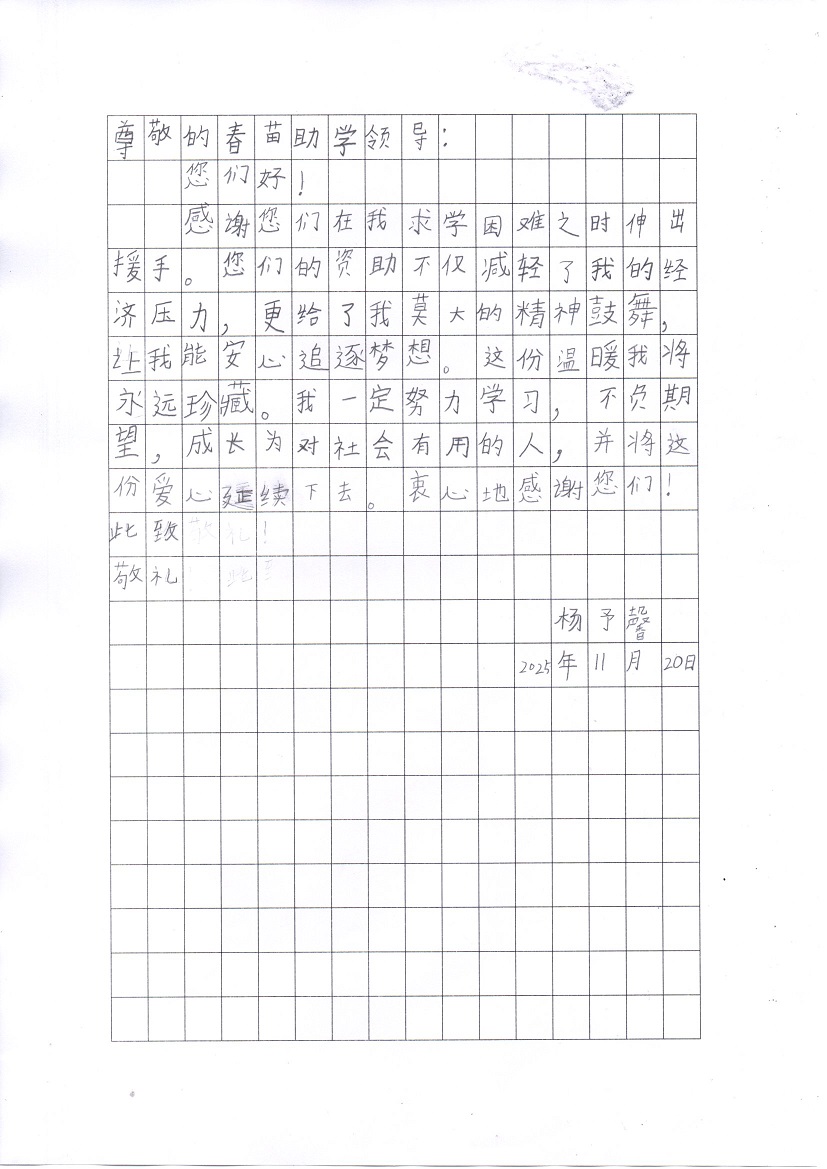 尊敬的春苗助学领导：
您们好！
感谢您们在我求学困难之时伸出
援手。您们的资助不仅减轻了我的经
济压力，更给了我莫大的精神鼓舞，
让我能安心追逐梦想。这份温暖我将
永远珍藏。我一定努力学习，不负期
望，成长为对社会有用的人，并将这
份爱心延续下去。衷心地感谢您们！
此致
敬礼
杨予馨
2025年11月20日